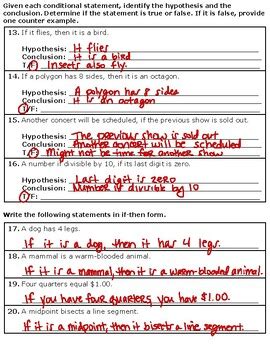 Given each conditional statement, identify the hypothesis and the
conclusion. Determine if the statement is true or false. If it is false, provide
one counter example.
13. If it flies, then it is a bird.
Hypothesis: It flies
Conclusion: It is a bird
T/F: Insects also fly.
14. If a polygon has 8 sides, then it is an octagon.
Hypothesis: A polygon has 8 sides
Conclusion: It is an octagon
T/F:
15. Another concert will be scheduled, if the previous show is sold out.
Hypothesis: The previous show is sold out
Conclusion: Another concert will be scheduled
T/F: Might not be time for another show
16. A number is divisible by 10, if its last digit is zero.
Hypothesis: Last digit is zero
Conclusion: Number is divisible by 10
T/F:
Write the following statements in if-then form.
17. A dog has 4 legs.
If it is a dog, then it has 4 legs.
18. A mammal is a warm-blooded animal.
If it is a mammal, then it is a warm-blooded animal.
19. Four quarters equal $1.00.
If you have four quarters, you have $1.00.
20. A midpoint bisects a line segment.
If it is a midpoint, then it bisects a line segment.